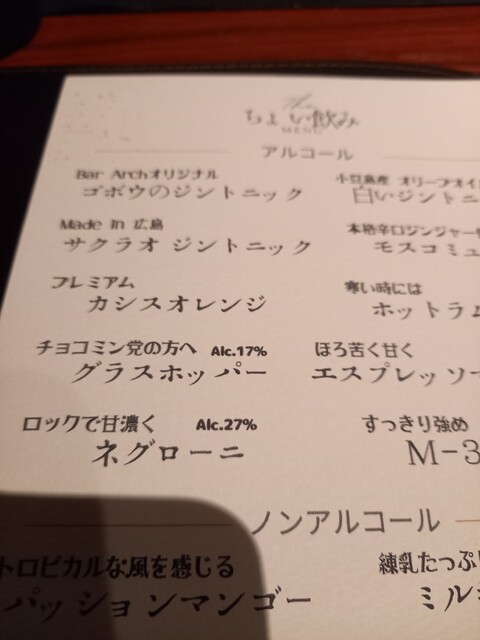 The
ちょい飲み
MENU
アルコール
Bar Archオリジナル
ゴボウのジントニック
小豆島産 オリーブオイ
白いジントニ
Made in 広島
サクラオ ジントニック
本格辛口ジンジャー
モスコミュ
プレミアム
カシスオレンジ
寒い時には
ホットラム
チョコミン党の方へ Alc.17%
グラスホッパー
ほろ苦く甘く
エスプレッソ
ロックで甘濃く Alc.27%
ネグローニ
すっきり強め
M-3
ノンアルコール
トロピカルな風を感じる
パッションマンゴー
練乳たっぷり
ミル